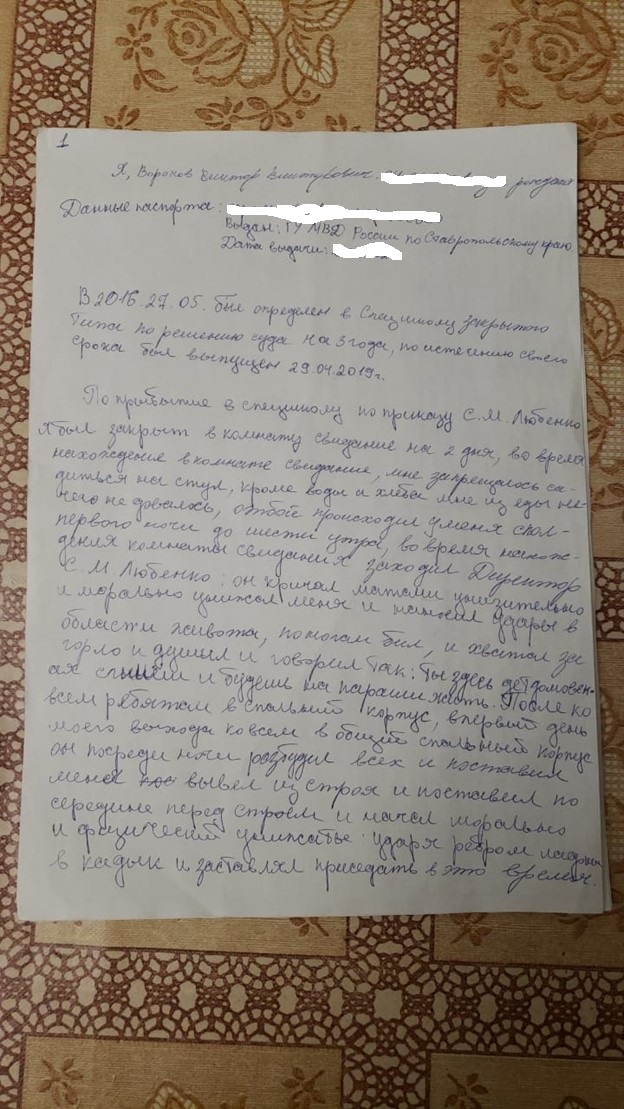 1
Я, Воронов Виктор Викторович. рождения
Данные паспорта:
Выдан: ГУ МВД России по Ставропольскому краю
Дата выдачи:
В 2016.27.05. был определен в Спецшколу закрытого
Типа по решению суда на 3 года, по истечению своего
срока был выпущен 29.04.2019г.
По прибытие в спецшколу по приказу С.М. Любенко
я был закрыт в комнату свидание на 2 дня, во время
нахождение в комнате свидание, мне запрещалось са-
диться на стул, кроме воды и хлеба мне из еды не-
чего не довалось, отбой происходил у меня с пол-
первого ночи до шести утра, во время нахож-
дения комнаты свидания заходил Директор
С.М. Любенко: он кричал матами унизительно
и морально унижал меня и наносил удары в
области живота, по ногам бил, и хватал за
горло и душил и говорил так: Ты здесь детдомовен-
ах и будешь на параши жить. После ко
всем ребятам в спальный корпус, в первый день
моего выхода ко всем в общий спальный корпус
он посреди ночи разбудил всех и поставил
меня вывел из строя и поставил по
середине перед строем и начал морально
и физический унижать ударя ребром ладони
в кадык и заставлял приседать в это время.